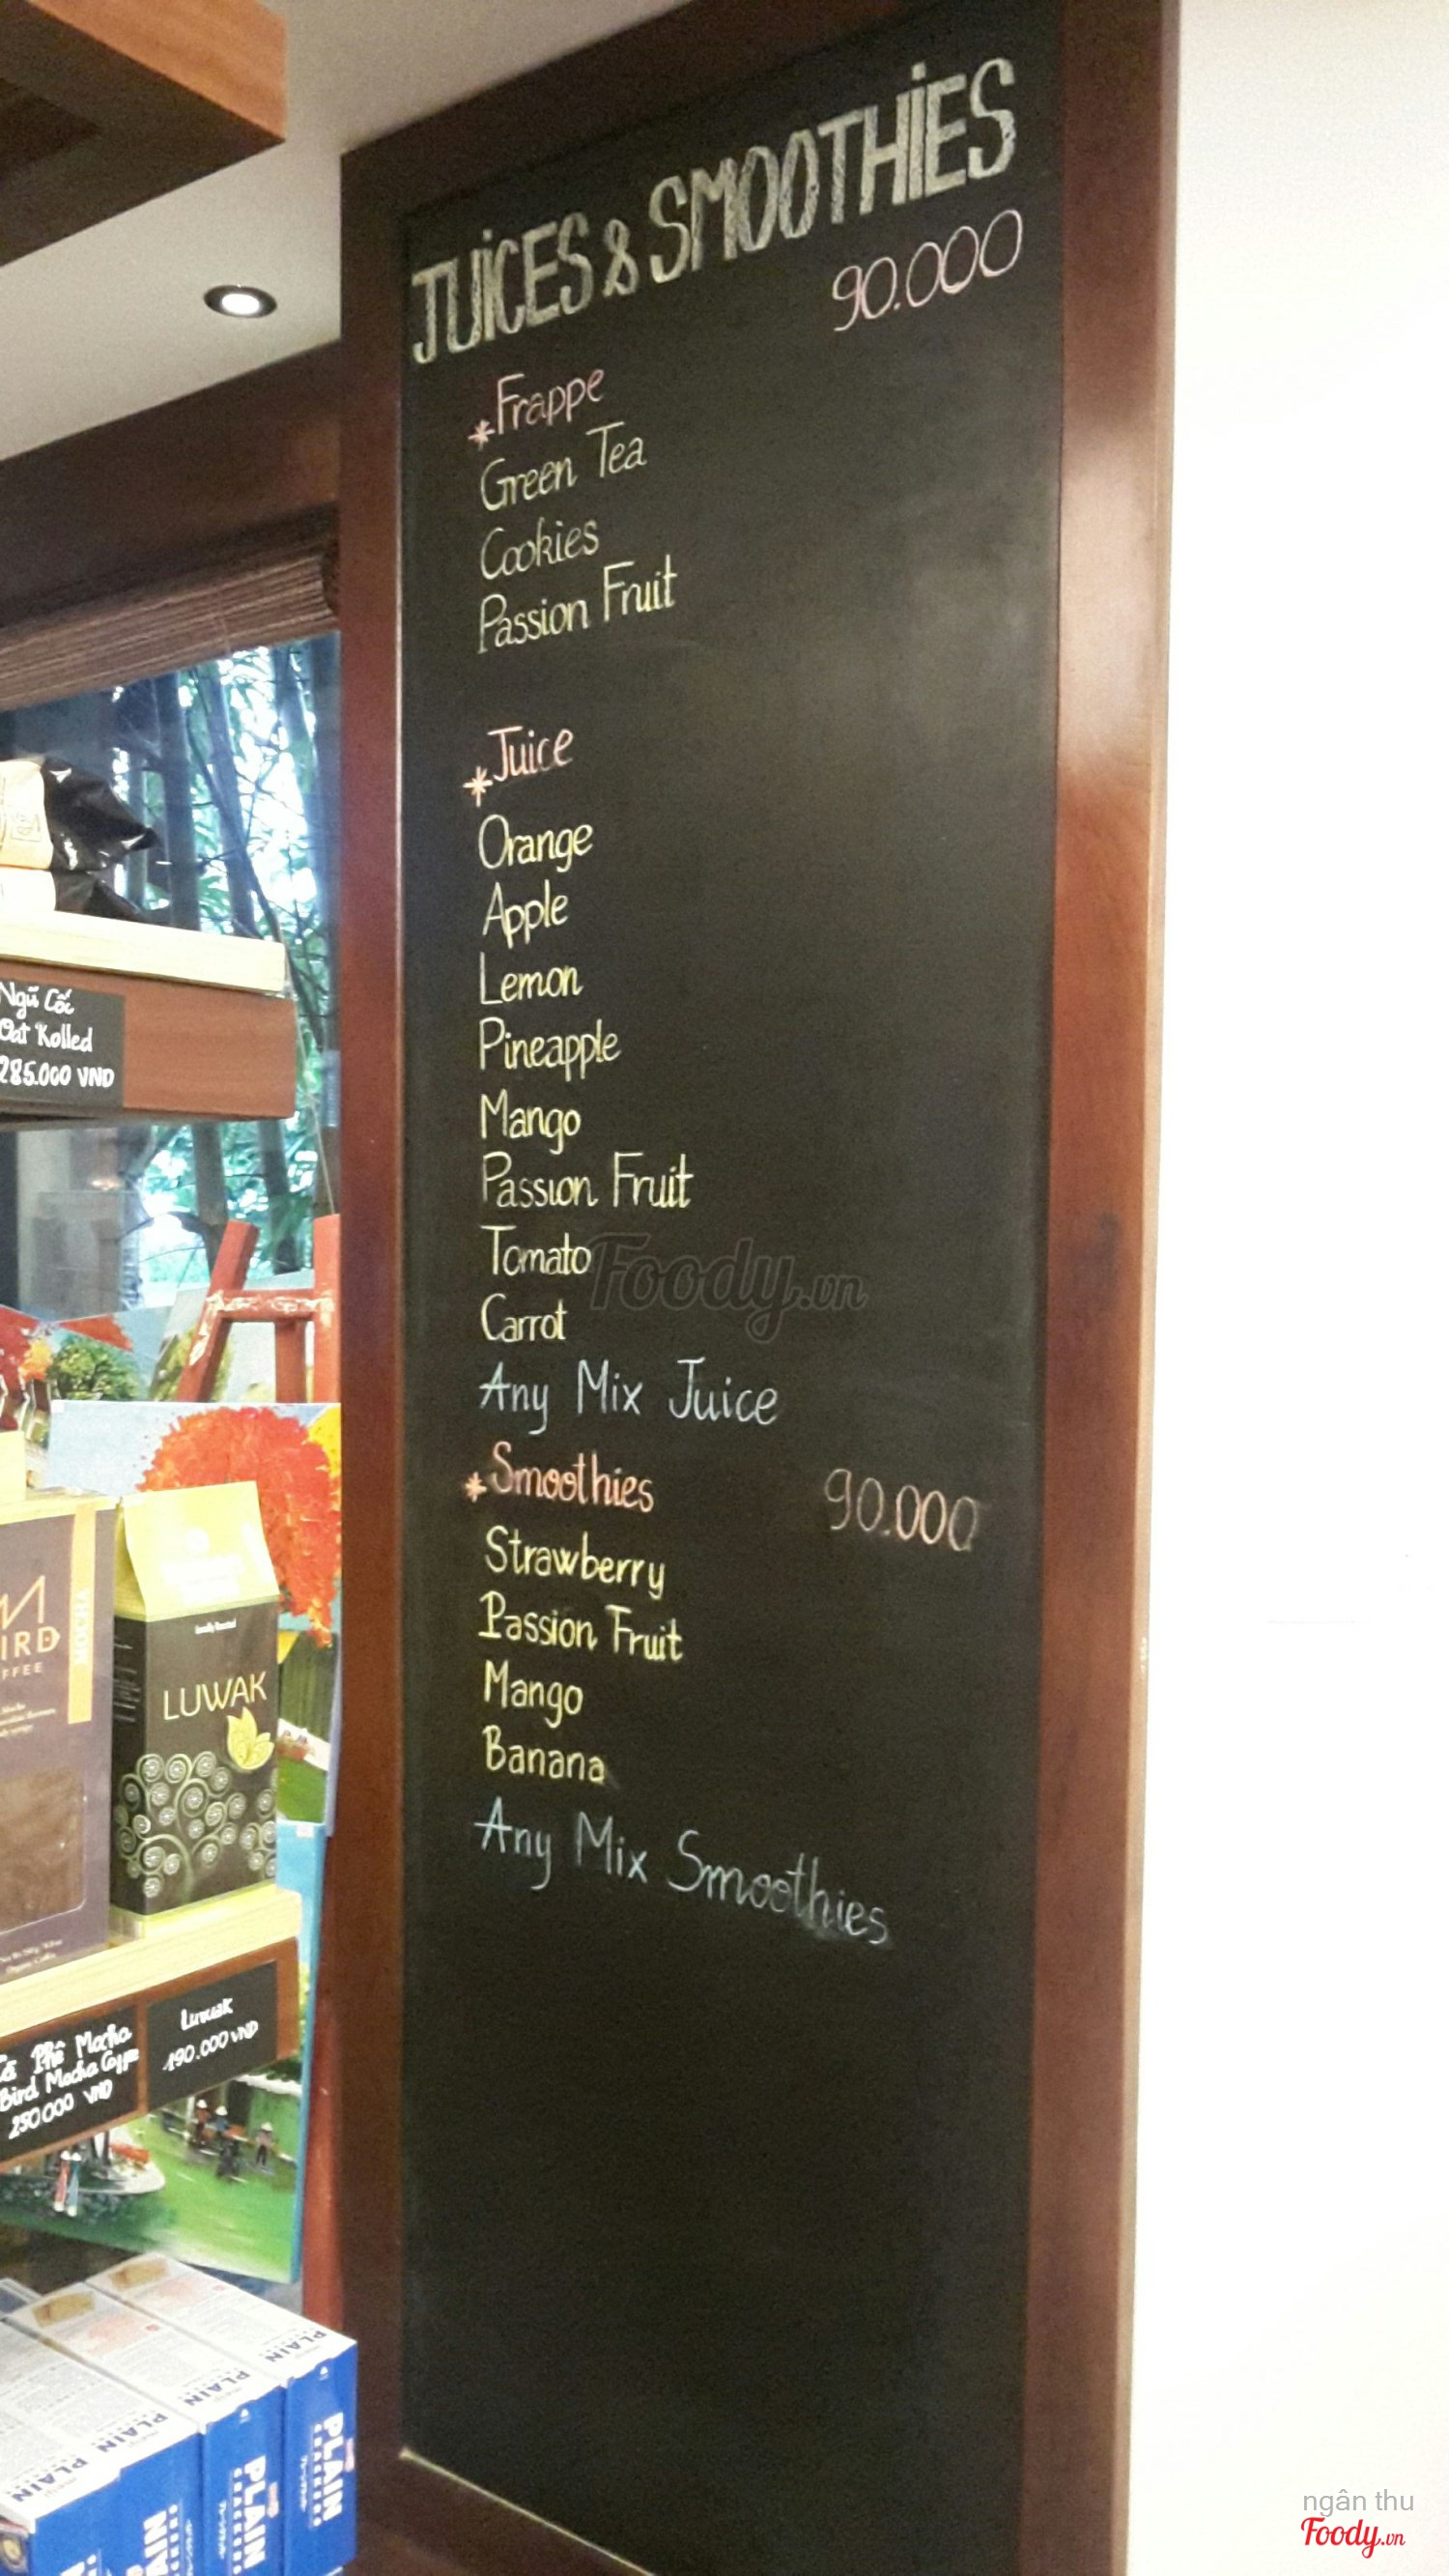 JUICES & SMOOTHIES
90.000
*Frappe
Green Tea
Cookies
Passion Fruit
*Juice
Orange
Apple
Lemon
Pineapple
Mango
Passion Fruit
Tomato
Carrot
Any Mix Juice
*Smoothies 90.000
Strawberry
Passion Fruit
Mango
Banana
Any Mix Smoothies
Foody.vn
Ngũ Cốc
Oat Rolled
285.000 VND
MOCHA
IRD
LUWAK
Phê Mocha
Bird Mocha
250000 VND
Luwak
190.000 VND
PLAIN
PLAIN
PLAIN
PLAIN
PLAIN
PLAIN
ngân thu
Foody.vn